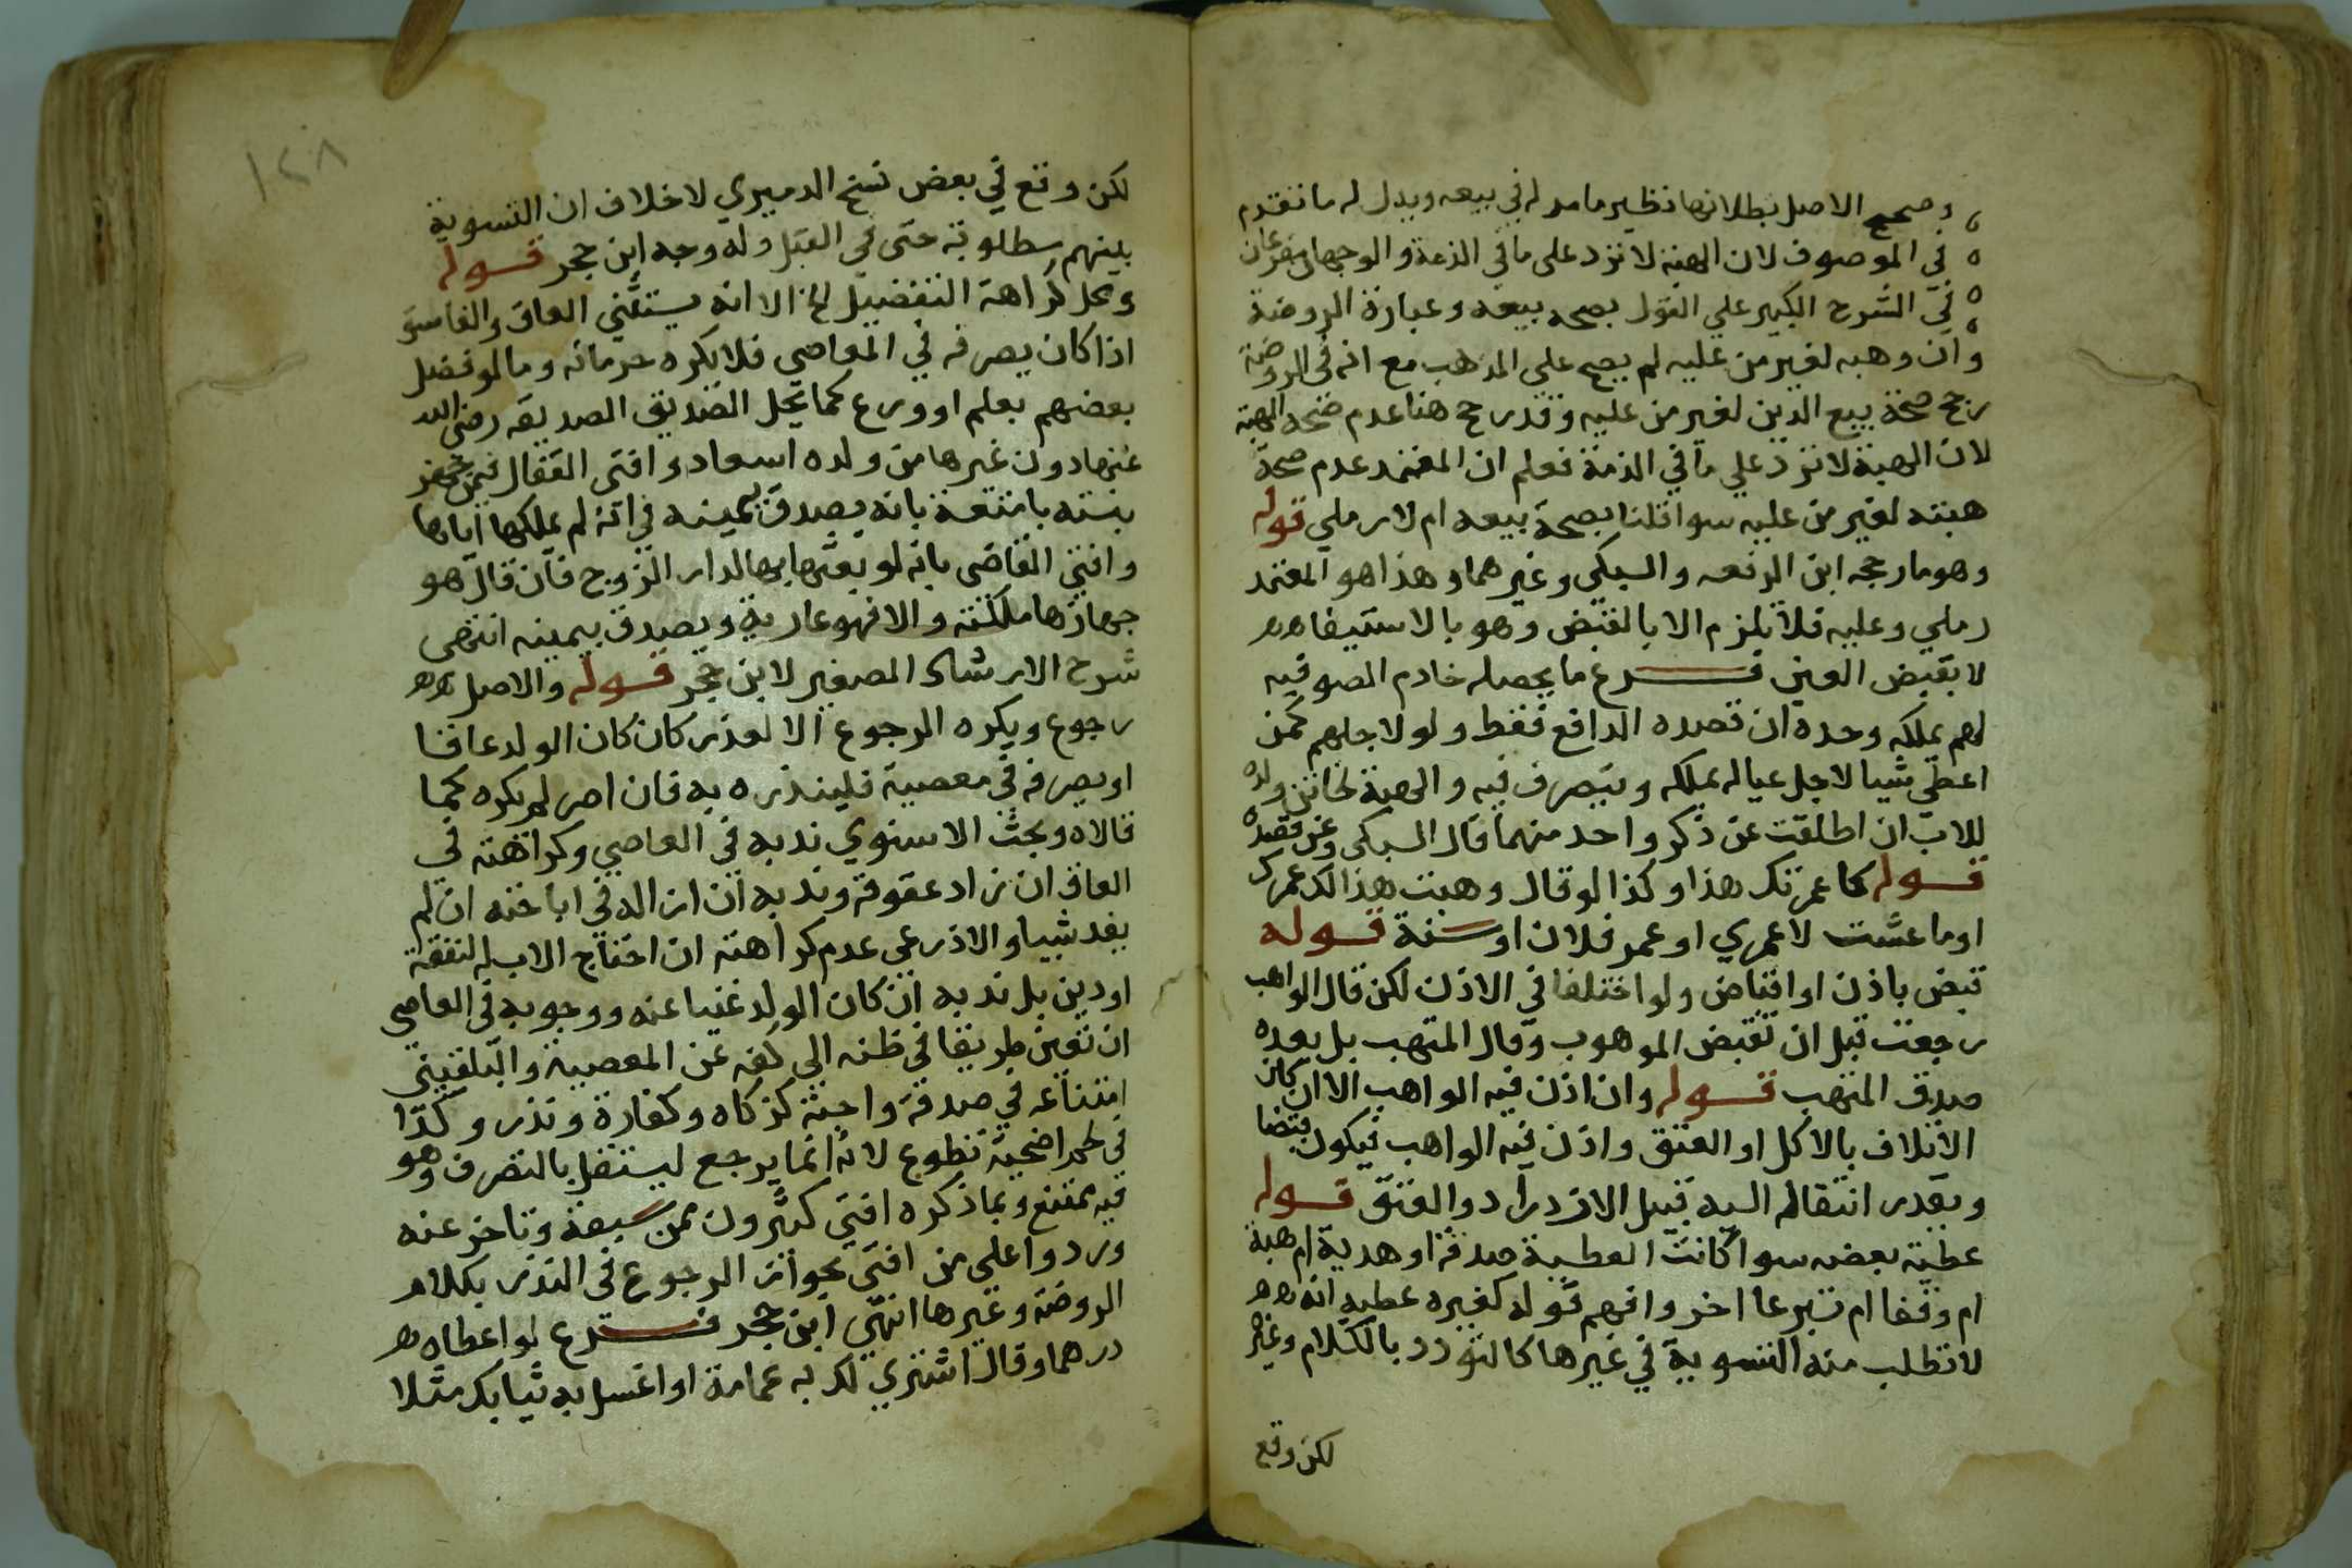 وصحح الاصل بطلانها نظير ما مر له في بيعه ويدل له ما تقدم
في الموصوف لان الهبة لا تزد على ما في الذمة والوجهان مفرعان
في الشرح الكبير علي القول بصحه بيعه وعبارة الروضة
وان وهبه لغير من عليه لم يصح على المذهب مع انه في الروضة
رجح صحة بيع الدين لغير من عليه وقد رجح هنا عدم صحه الهبة
لان الهبة لا تزد علي ما في الذمة فعلم ان المعتمد عدم صحة
هبته لغير من عليه سوا قلنا بصحة بيعه ام لا رملي قوله
وهو ما رجحه ابن الرفعه والسبكي وغيرهما وهذا هو المعتمد
رملي وعليه فلا يلزم الا بالقبض وهو بالاستيفا
لا بقبض العين فرع ما يحصله خادم الصوفيه
لهم يملكه وحده ان قصده الدافع فقط ولو لاجلهم كمن
اعطي شيا لاجل عياله يملكه ويتصرف فيه والهبة لخاتن ولده
للاب ان اطلقت عن ذكر واحد منهما قال السبكي وعن قصده
قوله كاعمرتك هذا وكذا لو قال وهبت هذا لك عمرك
او ما عشت لا عمري او عمر فلان او سنة قوله
قبض باذن او اقباض ولو اختلفا في الاذن لكن قال الواهب
رجعت قبل ان تقبض الموهوب وقال المتهب بل بعده
صدق المتهب قوله وان اذن فيه الواهب الا ان كان
الاتلاف بالاكل او العتق واذن فيه الواهب فيكون قبضا
ويقدر انتقاله اليه قبيل الازدراد والعتق قوله
عطية بعضه سوا كانت العطية صدقة او هدية ام هبة
ام وقفا ام تبرعا اخر وافهم قوله كغيره عطيه انه
لا تطلب منه التسوية في غيرها كالتودد بالكلام وغيره
لكن وقع
١٢٨
لكن وقع في بعض نسخ الدميري لا خلاف ان التسوية
بينهم مطلوبة حتى في القبل وله وجه ابن حجر قوله
ومحل كراهة التفضيل الخ الا انه يستثني العاق والفاسق
اذا كان يصرفه في المعاصي فلا يكره حرمانه وما لو فضل
بعضهم بعلم او ورع كما نحل الصديق الصديقه رضي الله
عنها دون غيرها من ولده اسعاد وافتى القفال فيمن جهز
بنته بامتعة بانه يصدق بيمينه في انه لم يملكها اياها
وافتي القاضي بانه لو بعثها بها لدار الزوج فان قال هو
جهازها ملكته والا فهو عارية ويصدق بيمينه انتهى
شرح الارشاد الصغير لابن حجر قوله والاصل
رجوع ويكره الرجوع الا لعذر كان كان الولد عاقا
او يصرفه في معصية فلينذره به فان اصر لم يكره كما
قالاه وبحث الاسنوي ندبه في العاصي وكراهته في
العاق ان زاد عقوقه وندبه ان ازاله في اباحته ان لم
يفد شيا والاذرعي عدم كراهته ان احتاج الاب له لنفقة
او دين بل ندبه ان كان الولد غنيا عنه ووجوبه في العاصي
ان تعين طريقا في ظنه الي كفه عن المعصية والبلقيني
امتناعه في صدقة واجبة كزكاه وكفارة ونذر وكذا
في لحم اضحية تطوع لانه انما يرجع ليستقل بالتصرف وهو
فيه ممتنع وبما ذكره افتي كثيرون ممن سبقه وتاخر عنه
وردوا على من افتى بجواز الرجوع في النذر بكلام
الروضة وغيرها انتهي ابن حجر فرع لو اعطاه
درهما وقال اشتري لك به عمامة او اغسل به ثيابك مثلا